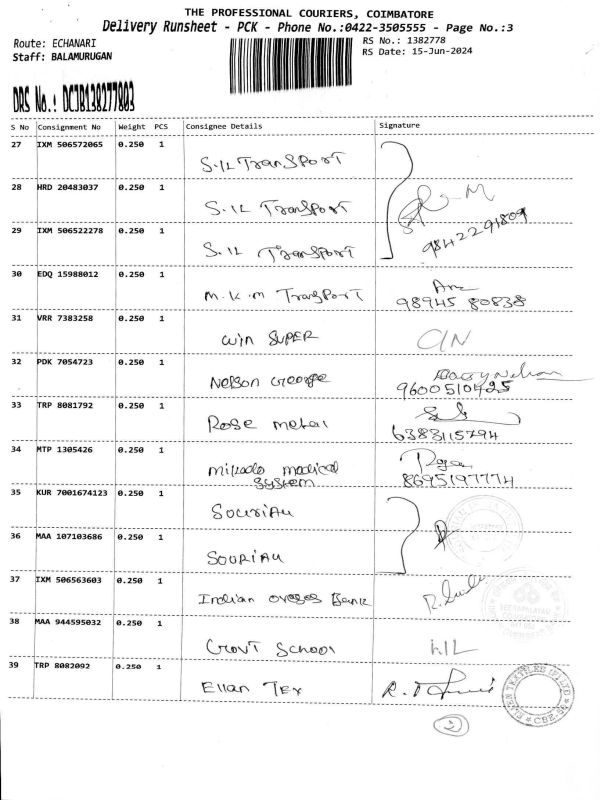 THE PROFESSIONAL COURIERS, COIMBATORE
Delivery Runsheet - PCK - Phone No.:0422-3505555 - Page No.:3
Route: ECHANARI
RS No.: 1382778
Staff: BALAMURUGAN
RS Date: 15-Jun-2024
DRS No.: DCJB138277803
S No Consignment No Weight PCS Consignee Details Signature
27 IXM 506572065 0.250 1 S.IL Transport
28 HRD 20483037 0.250 1 S.IL Transport
29 IXM 506522278 0.250 1 S.IL Transport
9842291809
30 EDQ 15988012 0.250 1 M.K.M Transport
98945 80838
31 VRR 7383258 0.250 1 Win SUPER
32 PDK 7054723 0.250 1 Nelson George
9600510425
33 TRP 8081792 0.250 1 Rose metal
6383115794
34 MTP 1305426 0.250 1 mikado medical
system
8695197774
35 KUR 7001674123 0.250 1 SOURIAU
36 MAA 107103686 0.250 1 SOURIAU
37 IXM 506563603 0.250 1 Indian oveses Bank
38 MAA 944595032 0.250 1 Govt School
39 TRP 8082092 0.250 1 Ellan Tex